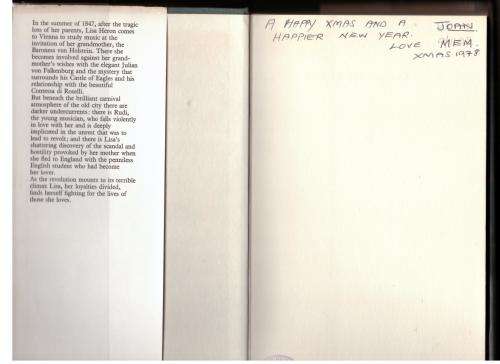 In the summer of 1847, after the tragic
loss of her parents, Lisa Heron comes
to Vienna to study music at the
invitation of her grandmother, the
Baroness von Holstein. There she
becomes involved against her grand-
mother's wishes with the elegant Julian
von Falkenburg and the mystery that
surrounds his Castle of Eagles and his
relationship with the beautiful
Contessa di Roselli.
But beneath the brilliant carnival
atmosphere of the old city there are
darker undercurrents: there is Rudi,
the young musician, who falls violently
in love with her and is deeply
implicated in the unrest that was to
lead to revolt; and there is Lisa's
shattering discovery of the scandal and
hostility provoked by her mother when
she fled to England with the penniless
English student who had become
her lover.
As the revolution mounts to its terrible
climax Lisa, her loyalties divided,
finds herself fighting for the lives of
those she loves.
A HAPPY XMAS AND A JOAN.
HAPPIER NEW YEAR.
LOVE MEM.
XMAS.1978